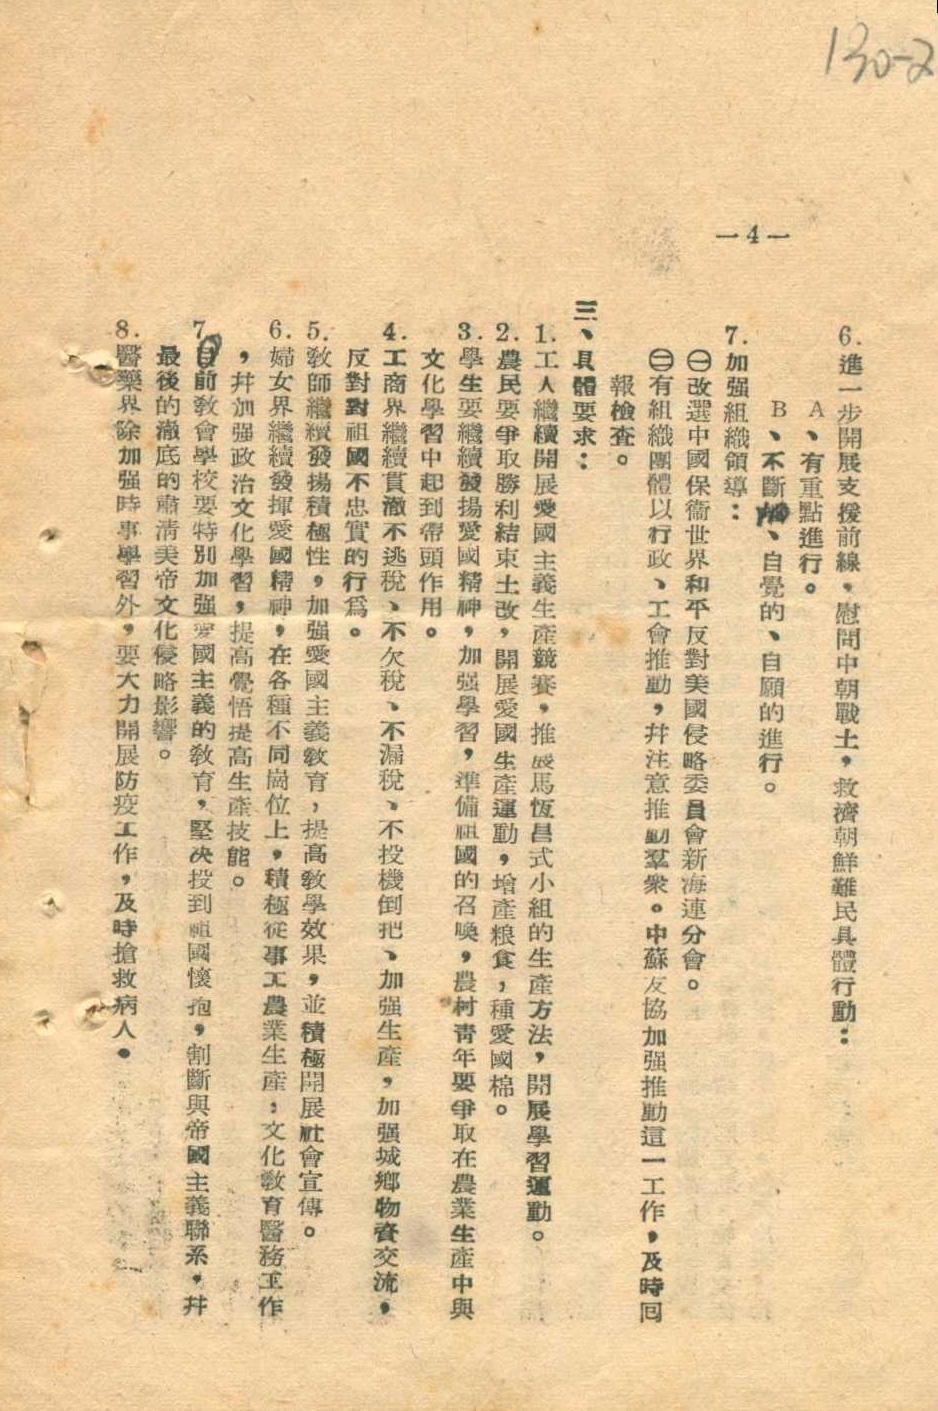 130-2
—4—
6.進一步開展支援前線，慰問中朝戰士，救濟朝鮮難民具體行動：
A、有重點進行。
B、不斷的、自覺的、自願的進行。
7.加强組織領導：
㊀改選中國保衞世界和平反對美國侵略委員會新海連分會。
㊁有組織團體以行政、工會推動，幷注意推動羣衆。中蘇友協加强推動這一工作，及時囘
報檢查。
三、具體要求：
1.工人繼續開展愛國主義生產競賽，推展馬恆昌式小組的生產方法，開展學習運動。
2.農民要爭取勝利結束土改，開展愛國生產運動，增產粮食，種愛國棉。
3.學生要繼續發揚愛國精神，加强學習，準備祖國的召喚，農村青年要爭取在農業生產中與
文化學習中起到帶頭作用。
4.工商界繼續貫澈不逃稅、不欠稅、不漏稅、不投機倒把、加强生產，加强城鄉物資交流，
反對對祖國不忠實的行爲。
5.教師繼續發揚積極性，加强愛國主義敎育，提高敎學效果，並積極開展社會宣傳。
6.婦女界繼續發揮愛國精神，在各種不同崗位上，積極從事工農業生產，文化敎育醫務工作
，幷加强政治文化學習，提高覺悟提高生產技能。
7.目前敎會學校要特別加强愛國主義的敎育，堅决投到祖國懷抱，割斷與帝國主義聯系，幷
最後的澈底的肅清美帝文化侵略影響。
8.醫藥界除加强時事學習外，要大力開展防疫工作，及時搶救病人．